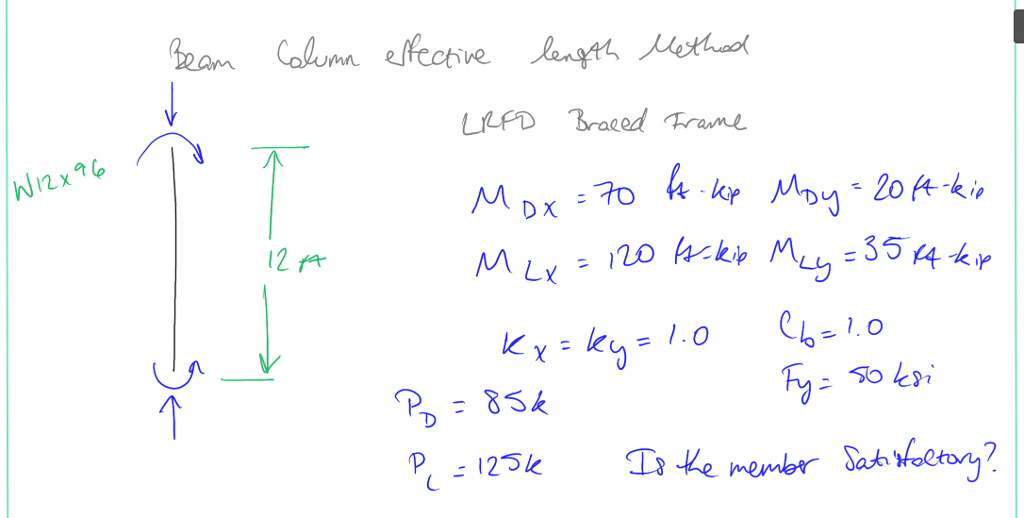 Beam Column effective length Method
LRFD Braced Frame
W12x96
M DX = 70 ft-kip MDy = 20 ft-kip
12 ft
M LX = 120 ft-kip MLy = 35 ft-kip
Kx = ky = 1.0 Cb = 1.0
Fy = 50 ksi
PD = 85k
PL = 125k Is the member Satisfactory?